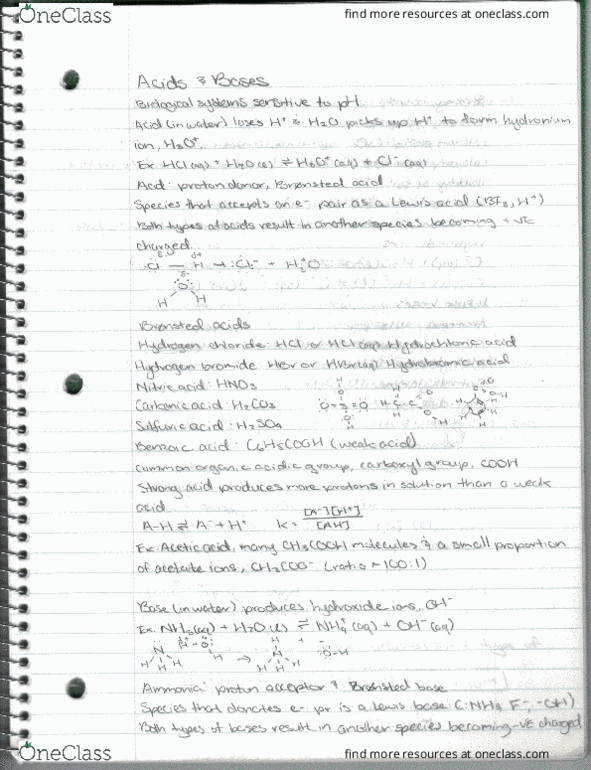 OneClass
find more resources at oneclass.com
Acids & Bases
Biological systems sensitive to pH
Acid (in water) loses H⁺ & H₂O picks up H⁺ to form hydronium
ion, H₃O⁺.
Ex. HCl (aq) + H₂O (l) ⇌ H₃O⁺ (aq) + Cl⁻ (aq)
Acid: proton donor, Brønsted acid
Species that accepts an e⁻ pair as a Lewis acid (BF₃, H⁺)
Both types of acids result in another species becoming +VE
charged.
:Cl — H → :Cl:⁻ + H₃⁺O
δ+
δ-
:O:
H H
Brønsted acids
Hydrogen chloride: HCl or HCl (aq) Hydrochloric acid
Hydrogen bromide: HBr or HBr (aq) Hydrobromic acid
Nitric acid: HNO₃
Carbonic acid: H₂CO₃
Sulfuric acid: H₂SO₄
Benzoic acid: C₆H₅COOH (weak acid)
Common organic acidic group, carboxyl group, COOH
Strong acid produces more protons in solution than a weak
acid
A-H ⇌ A⁻ + H⁺ K = [A⁻][H⁺] / [AH]
Ex. Acetic acid, many CH₃COOH molecules & a small proportion
of acetate ions, CH₃COO⁻ (ratio ~ 100:1)
Base (in water) produces hydroxide ions, OH⁻
Ex. NH₃ (aq) + H₂O (l) ⇌ NH₄⁺ (aq) + OH⁻ (aq)
Ammonia: proton acceptor & Brønsted base
Species that donates e⁻ pr is a Lewis base (:NH₃, F⁻, ⁻OH)
Both types of bases result in another species becoming -VE charged
OneClass
find more resources at oneclass.com